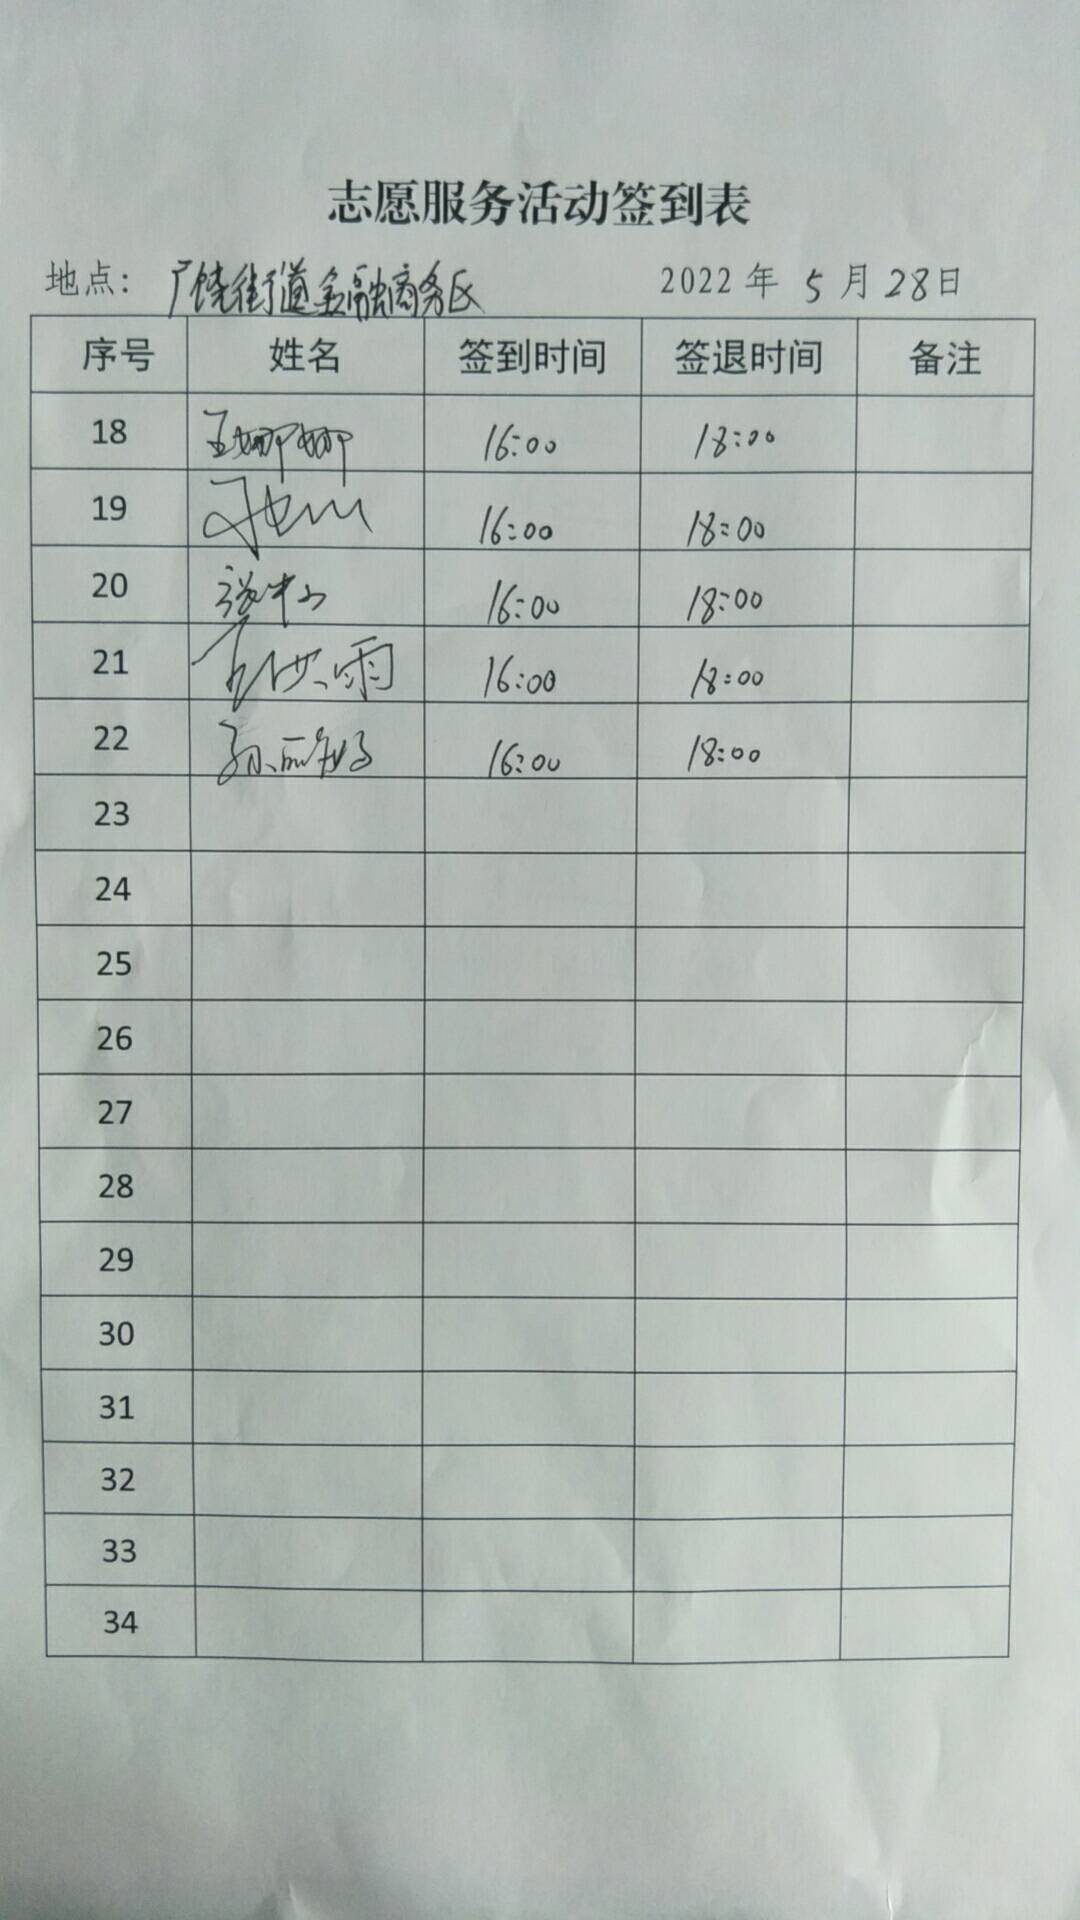 志愿服务活动签到表
地点: 广饶街道金融商务区 2022年 5月28日
序号 姓名 签到时间 签退时间 备注
18 王娜娜 16:00 18:00
19 16:00 18:00
20 16:00 18:00
21 洪雨 16:00 18:00
22 孙 16:00 18:00
23
24
25
26
27
28
29
30
31
32
33
34